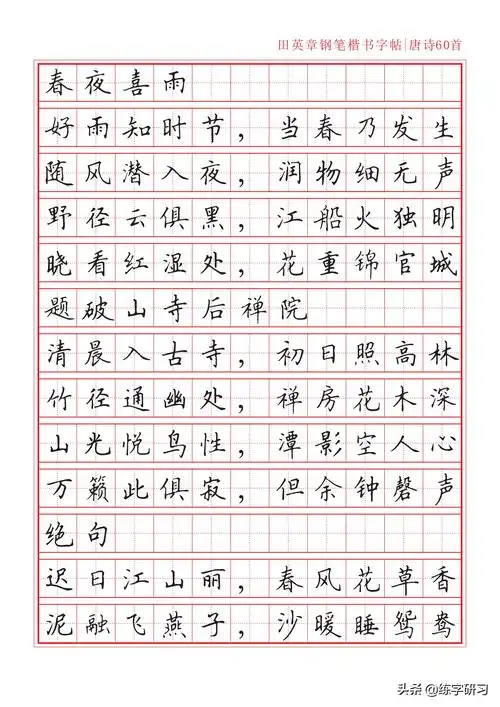 田英章钢笔楷书字帖|唐诗60首
春夜喜雨
好雨知时节，当春乃发生
随风潜入夜，润物细无声
野径云俱黑，江船火独明
晓看红湿处，花重锦官城
题破山寺后禅院
清晨入古寺，初日照高林
竹径通幽处，禅房花木深
山光悦鸟性，潭影空人心
万籁此俱寂，但余钟磬声
绝句
迟日江山丽，春风花草香
泥融飞燕子，沙暖睡鸳鸯
头条@练字研习